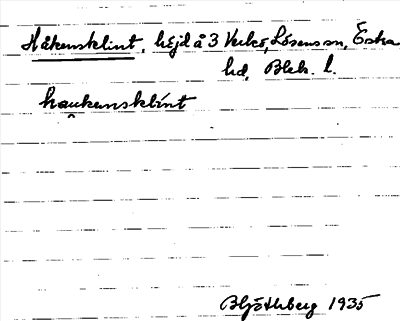 Håkensklint, höjd å 3 Verkö, Lösens sn, Östra
hd, Blek. l.
haukensklínt
1935